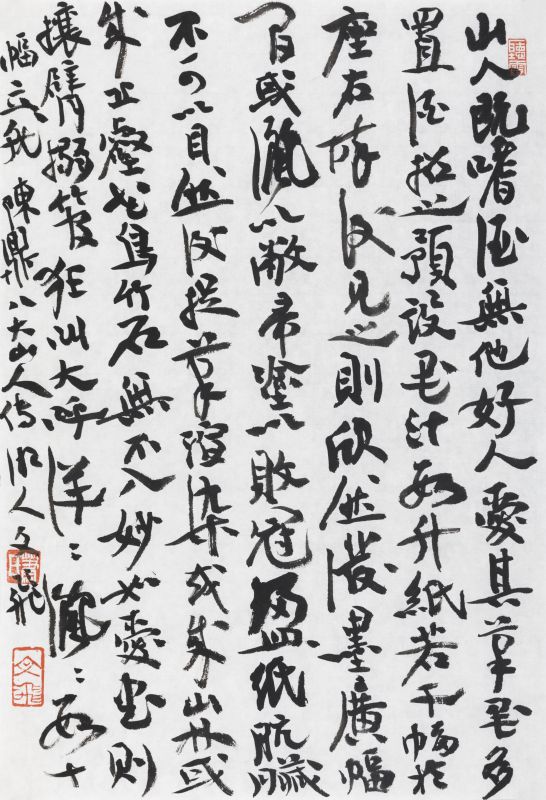 山人既嗜酒無他好人愛其筆墨多
置酒招之預設墨汁數升紙若干幅於
座右醉後見之則欣然潑墨廣幅
間或灑以敝帚塗以敗冠盈紙骯髒
不可以目然後捉筆渲染或成山林或
成丘壑花鳥竹石無不入妙如愛書則
攘臂搦管狂叫大呼洋〻灑〻數十
幅立就 陳鼎八大山人傳 湘人文飛
文飛